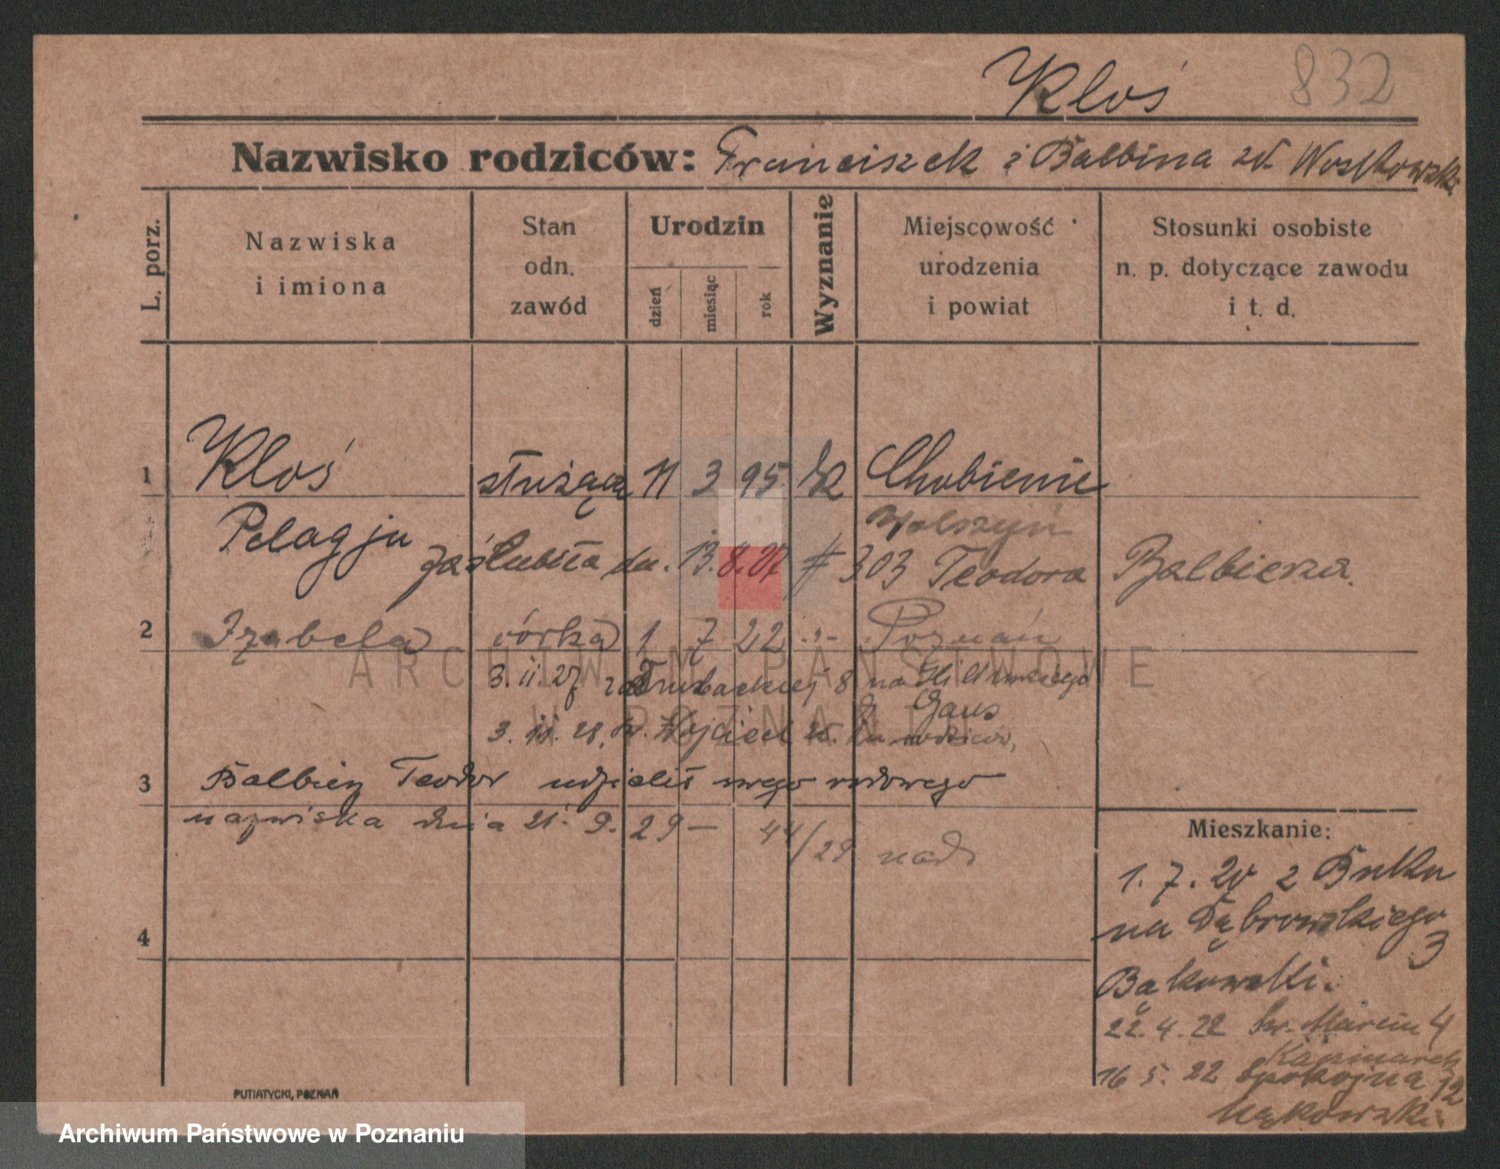 Kloś 832
Nazwisko rodziców: Franciszek i Balbina zd.
L. porz.
Nazwiska i imiona
Stan odn. zawód
Urodzin
dzień
miesiąc
rok
Wyznanie
Miejscowość urodzenia i powiat
Stosunki osobiste n. p. dotyczące zawodu i t. d.
1 Kloś służąca 11 3 95 Chobienie
Pelagju Wolsztyn
zaślubiła dn. 13.8.27 # 303 Teodora Balbierza.
2 Izabela córka 1 7 22 -"- Poznań
ARCHIWUM PAŃSTWOWE
3.11.27 8
W POZNANIU
Gaus
3. 28, św. Wojciech
3 Balbierz Teodor udzielił swego rodowego
nazwiska dnia 21. 9. 29 — 44/29
Mieszkanie:
1. 7. 20 z Buku
na Dąbrowskiego
3
Bąkowski.
4
22. 4. 22 św. Marcin 4
Kaczmarek
16 5. 22 Spokojna 12
PUTIATYCKI, POZNAŃ
Archiwum Państwowe w Poznaniu